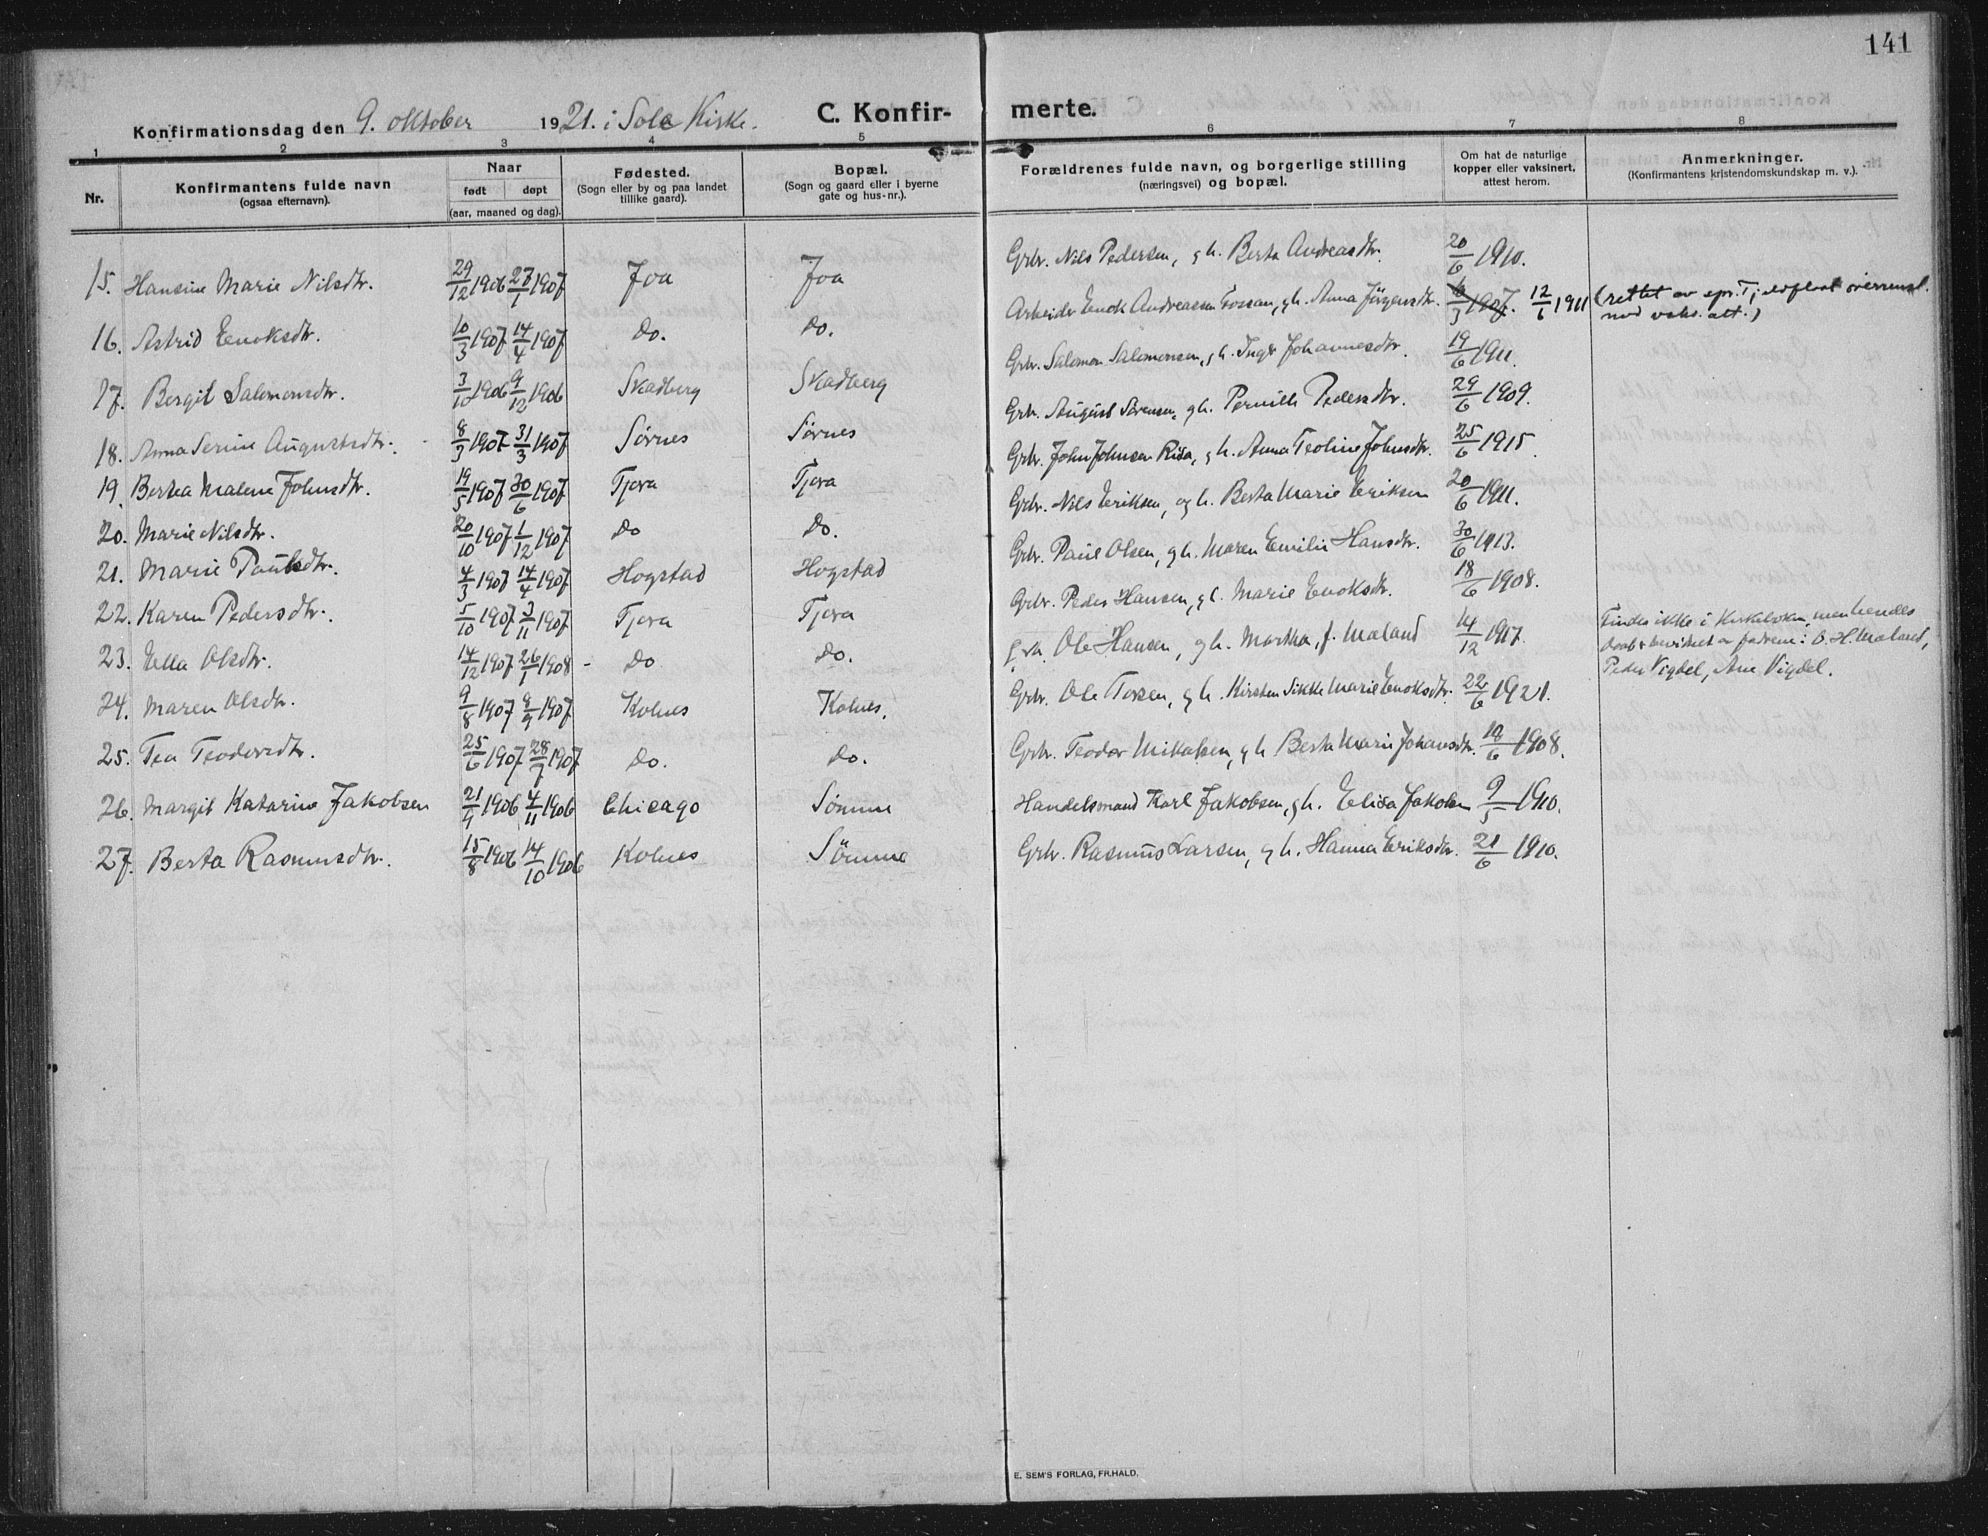 141
Konfirmationsdag den 9. oktober 1921. i Sole Kirke. C. Konfir- merte.
1 2 3 4 5 6 7 8
Nr. Konfirmantens fulde navn (ogsaa efternavn). Naar født døpt (aar, maaned og dag). Fødested. (Sogn eller by og paa landet tillike gaard). Bopæl. (Sogn og gaard eller i byerne gate og hus-nr.). Forældrenes fulde navn, og borgerlige stilling (næringsvei) og bopæl. Om hat de naturlige kopper eller vaksinert, attest herom. Anmerkninger. (Konfirmantens kristendomskundskap m. v.).
15. Hansine Marie Nilsdtr. 29/12 1906 27/1 1907 Joa Joa Grbr. Nils Pedersen, g h. Berta Andreasdtr. 20/6 1910.
16. Astrid Enoksdtr. 10/3 1907 14/4 1907 Do. Do. Arbeider Enok Andreassen Fossan, g h. Anna Jörgensdtr. 1907. 12/6 1911 (rettet av spr. T,
17. Bergit Salomonsdtr. 3/10 1906 9/12 1906 Skadberg Skadberg Grbr. Salomon Salomonsen, g h. Inger Johannesdtr. 19/6 1911.
18. Anna Serine Augustsdtr. 8/3 1907 31/3 1907 Sörnes Sörnes Grbr. August Sörensen, g h. Pernille Pedersdtr. 29/6 1909.
19. Bertea Malene Johnsdtr. 19/5 1907 30/6 1907 Tjora Tjora Grbr. John Johnsen Risa, g h. Anna Teoline Johnsdtr. 25/6 1915.
20. Marie Nilsdtr. 20/10 1907 1/12 1907 Do Do. Grbr. Nils Eriksen, og h. Berta Marie Eriksen 20/6 1911.
21. Marie Paulsdtr. 4/3 1907 14/4 1907 Hogstad Hogstad Grbr. Paul Olsen, g h. Maren Emilie Hansdtr. 30/6 1913.
22. Karen Pedersdtr. 5/10 1907 3/11 1907 Tjora Tjora Grbr. Peder Hansen, g h. Marie Enoksdtr. 18/6 1908.
23. Ella Olsdtr. 14/12 1907 26/1 1908 - Do Do. Ole Hansen, g h. Martha, f. Maland 14/12 1917. Findes ikke i Kirkeboken, men hendes
daab bevidnet av fadrene: O. H. Maland,
Peder Vigdel, Ane Vigdel.
24. Maren Olsdtr. 9/8 1907 8/9 1907 Kolnes Kolnes. Grbr. Ole Torsen, g h. Kirsten Sikke Marie Enoksdtr. 22/6 1921.
25. Tea Teodorsdtr. 25/6 1907 28/7 1907 Do. Do. Grbr. Teodor Mikalsen, g h Berta Marie Johansdtr. 18/6 1908.
26. Margit Katarine Jakobsen 21/9 1906 4/11 1906 Chicago Sömme Handelsmand Karl Jakobsen, g h. Elisa Jakobsen 9/5 1910.
27. Berta Rasmusdtr. 15/8 1906 14/10 1906 Kolnes Sömme Grbr. Rasmus Larsen, g h. Hanna Eriksdtr. 21/6 1910.
E. SEM'S FORLAG, FR.HALD.